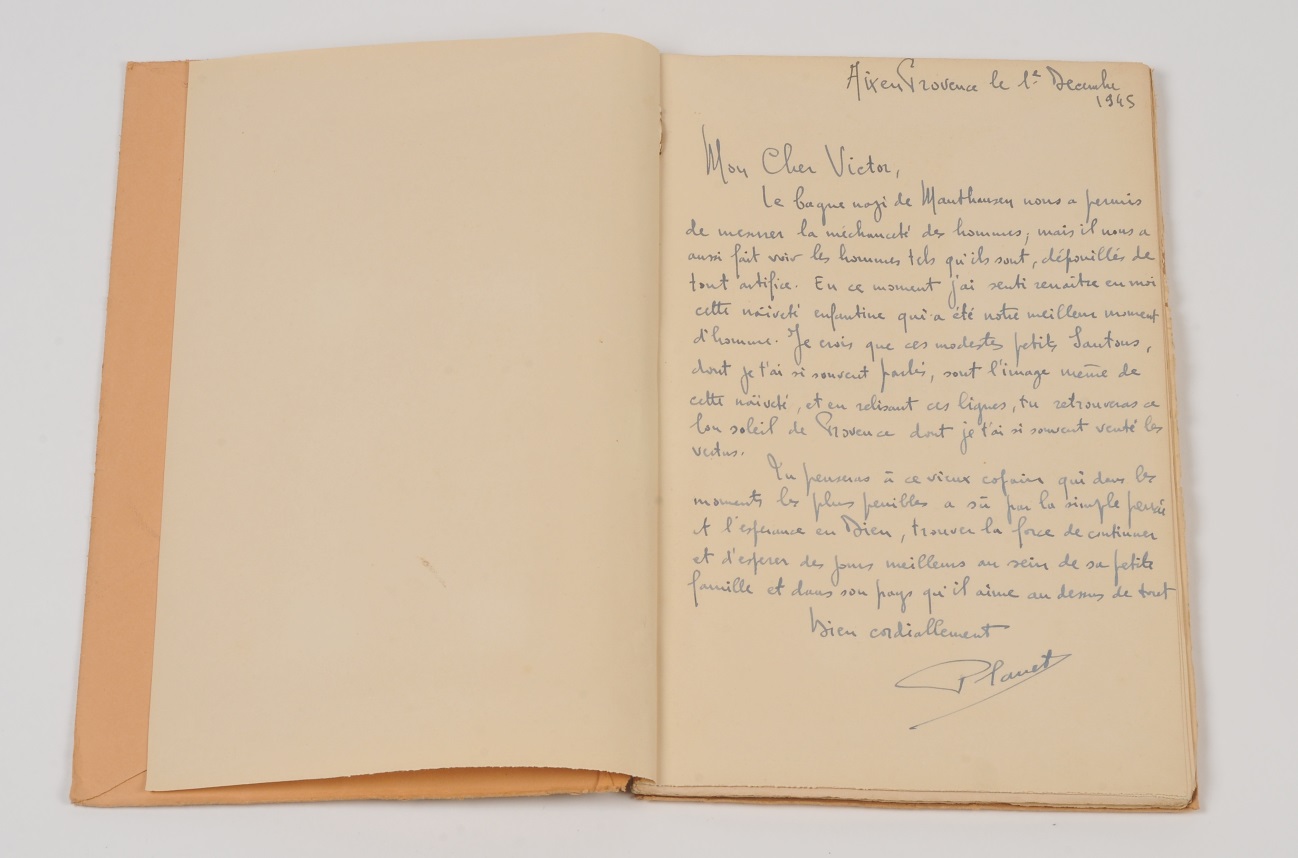 Aix en Provence le 1er Decembre
1945
Mon Cher Victor,
Le bagne nazi de Mauthausen nous a permis
de mesurer la méchanceté des hommes; mais il nous a
aussi fait voir les hommes tels qu'ils sont, dépouillés de
tout artifice. En ce moment j'ai senti renaître en moi
cette naïveté enfantine qui a été notre meilleur moment
d'homme. Je crois que ces modestes petits Santons,
dont je t'ai si souvent parlés, sont l'image même de
cette naïveté, et en relisant ces lignes, tu retrouveras ce
bon soleil de Provence dont je t'ai si souvent venté les
vertus.
Tu penseras à ce vieux copain qui dans les
moments les plus penibles a sû par la simple pensée
et l'esperance en Dieu, trouver la force de continuer
et d'esperer des jours meilleurs au sein de sa petite
famille et dans son pays qu'il aime au dessus de tout
Bien cordiallement
Planet